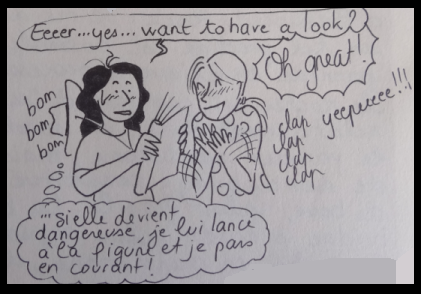 Eeeer...yes... want to have a look?
Oh great!
bom
bom
bom
clap yeepeeee!!!
clap
clap
clap
...si elle devient
dangereuse, je lui lance
à la figure et je pars
en courant!